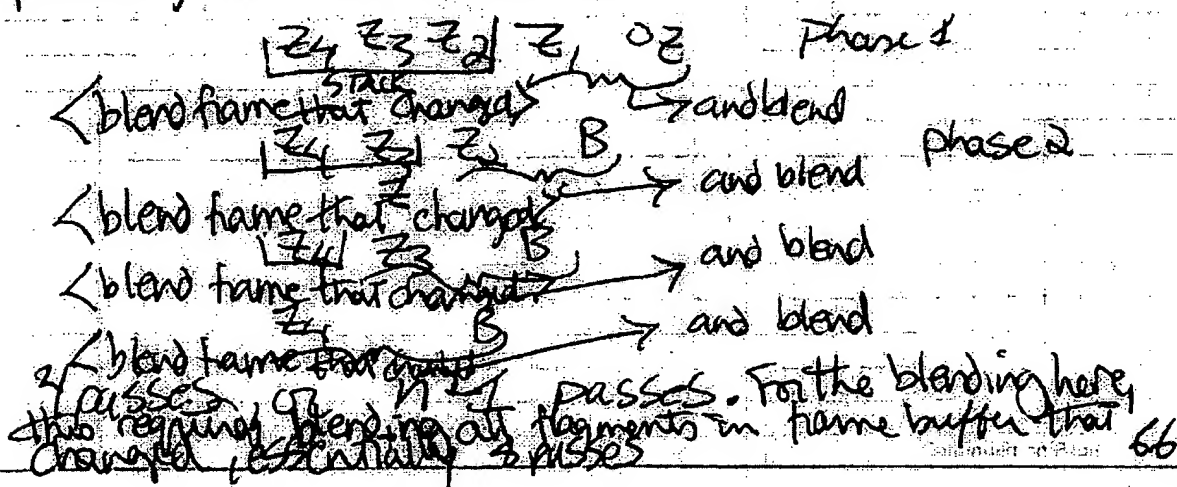 Z4 Z3 Z2 Z1 OZ Phase 1
Stack
<blend frame that changed> and blend
Z4 Z3 Z2 B phase 2
<blend frame that changed> and blend
Z4 Z3 B
<blend frame that changed> and blend
Z4 B
<blend frame that and blend
passes or passes. For the blending here,
this requires blending all fragments in frame buffer that
changed, essentially 3 passes
66